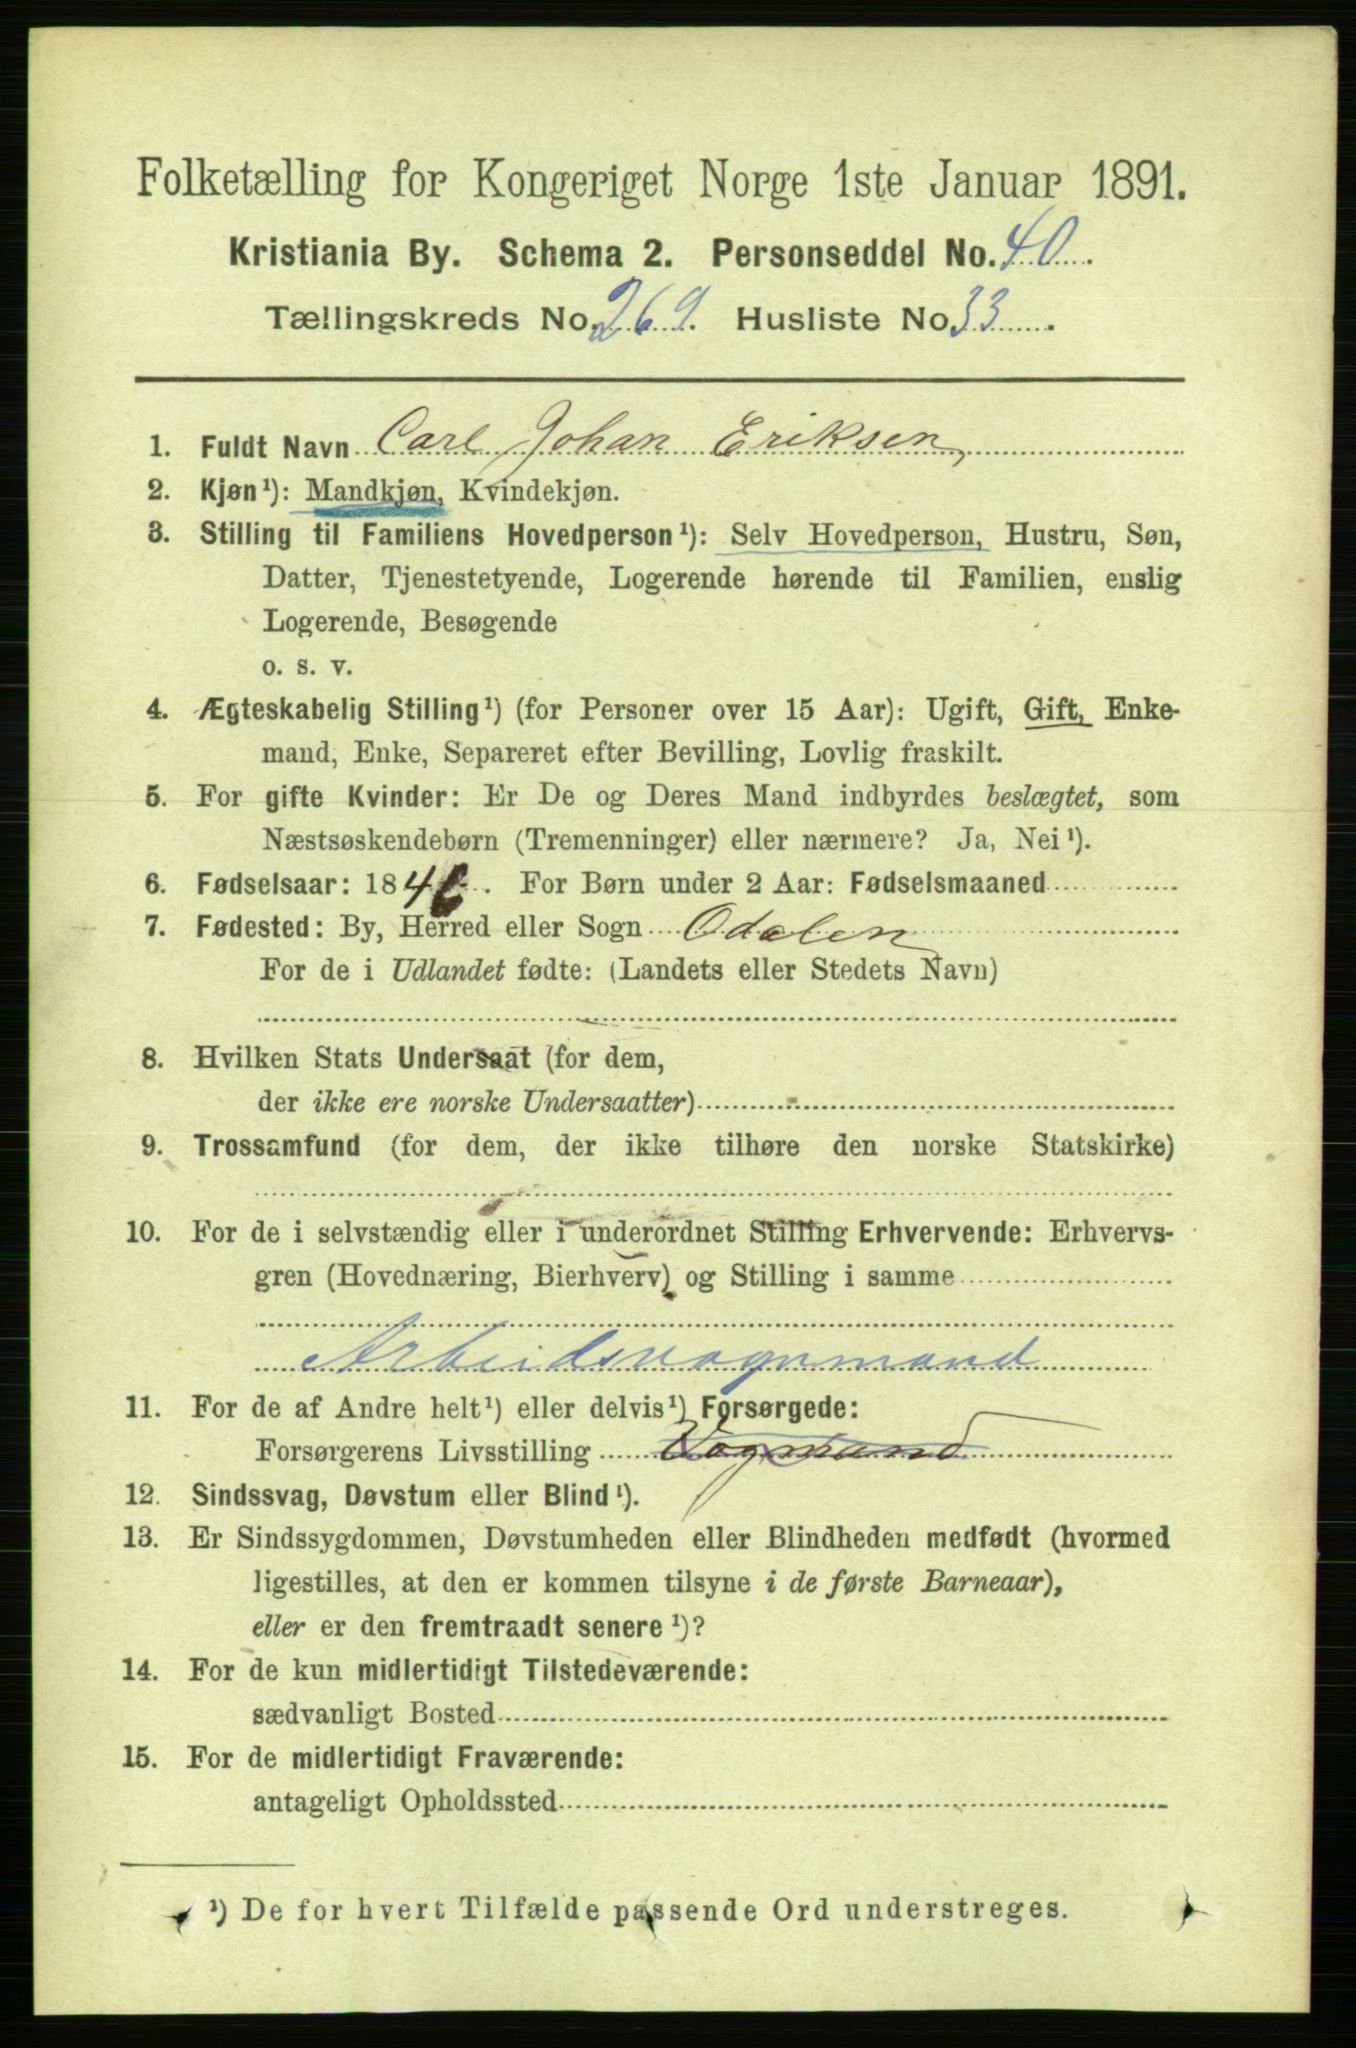 Folketælling for Kongeriget Norge 1ste Januar 1891.
Kristiania By. Schema 2. Personseddel No. 40.
Tællingskreds No. 269. Husliste No 33.
1. Fuldt Navn Carl Johan Eriksen
2. Kjøn¹): Mandkjøn, Kvindekjøn.
3. Stilling til Familiens Hovedperson¹): Selv Hovedperson, Hustru, Søn,
Datter, Tjenestetyende, Logerende hørende til Familien, enslig
Logerende, Besøgende
o. s. v.
4. Ægteskabelig Stilling¹) (for Personer over 15 Aar): Ugift, Gift, Enke-
mand, Enke, Separeret efter Bevilling, Lovlig fraskilt.
5. For gifte Kvinder: Er De og Deres Mand indbyrdes beslægtet, som
Næstsøskendebørn (Tremenninger) eller nærmere? Ja, Nei¹).
6. Fødselsaar: 1846. For Børn under 2 Aar: Fødselsmaaned
7. Fødested: By, Herred eller Sogn Odalen
For de i Udlandet fødte: (Landets eller Stedets Navn)
8. Hvilken Stats Undersaat (for dem,
der ikke ere norske Undersaatter)
9. Trossamfund (for dem, der ikke tilhøre den norske Statskirke)
10. For de i selvstændig eller i underordnet Stilling Erhvervende: Erhvervs-
gren (Hovednæring, Bierhverv) og Stilling i samme
Arbeidsvognmand
11. For de af Andre helt¹) eller delvis¹) Forsørgede:
Forsørgerens Livsstilling Vogmand
12. Sindssvag, Døvstum eller Blind¹).
13. Er Sindssygdommen, Døvstumheden eller Blindheden medfødt (hvormed
ligestilles, at den er kommen tilsyne i de første Barneaar),
eller er den fremtraadt senere¹)?
14. For de kun midlertidigt Tilstedeværende:
sædvanligt Bosted
15. For de midlertidigt Fraværende:
antageligt Opholdssted
¹) De for hvert Tilfælde passende Ord understreges.